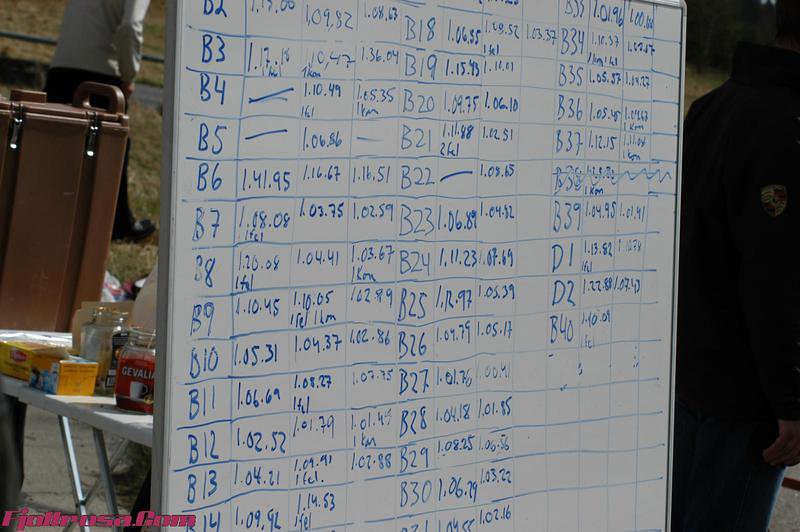 B2 1.13.00 1.09.82 1.08.63
B3 1.17.18 1.10.47 1.36.04
1fel 1km
B4 1.10.49 1.05.35
1fel 1Km
B5 1.06.86
B6 1.41.95 1.16.67 1.16.51
B7 1.08.08 1.03.75 1.02.59
1fel
B8 1.20.08 1.04.41 1.03.67
1fel 1Km
B9 1.10.45 1.10.05 1.02.89
1fel 1km
B10 1.05.31 1.04.37 1.02.86
B11 1.06.69 1.08.27 1.07.75
1fel
B12 1.02.52 1.01.79 1.01.49
1Km
B13 1.04.21 1.09.91 1.02.88
1fel.
14 1.09.92 1.14.53
1fel
B18 1.06.55 1.08.52 1.03.37
1fel
B19 1.15.93 1.11.01
B20 1.09.75 1.06.10
B21 1.11.88 1.02.51
2fel
B22 1.08.65
B23 1.06.89 1.04.82
B24 1.11.23 1.07.69
B25 1.12.97 1.05.39
B26 1.04.79 1.05.17
B27 1.01.76 1.00.41
B28 1.04.18 1.01.85
B29 1.08.25 1.06.56
B30 1.06.29 1.03.22
1.02.16
B33 1.01.96
B34 1.10.37
1km 1fel
B35 1.05.57 1.04.27
B36 1.05.45 1.04.67
1Km
B37 1.12.15 1.11.04
1Km
B38
1Km
B39 1.04.95 1.01.41
D1 1.13.82
1fel
D2 1.22.88 1.07.43
B40 1.10.09
1fel
GEVALIA
Fjollrosa.Com